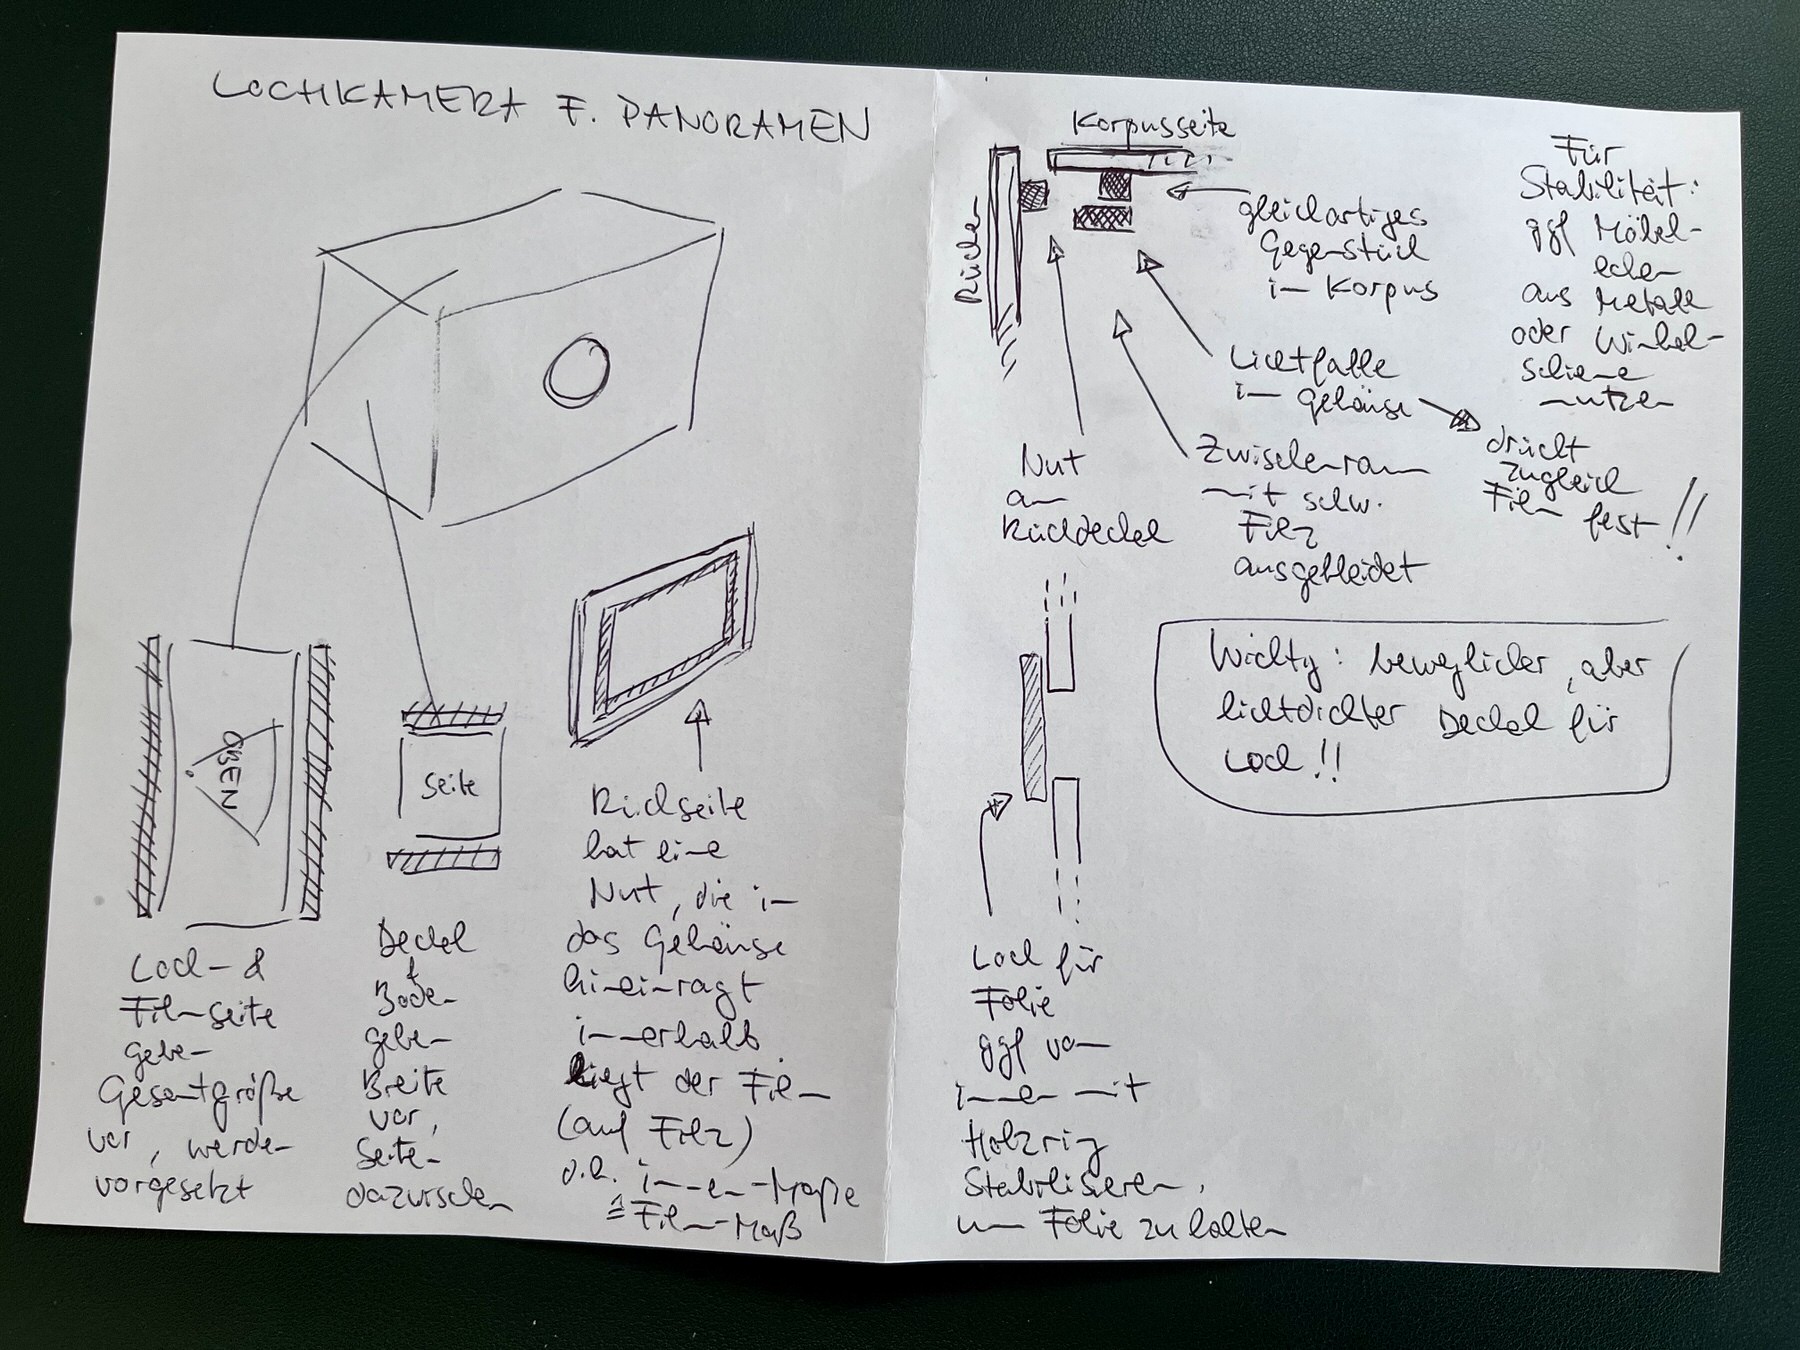 LOCHKAMERA F. PANORAMEN
OBEN
Seite
Loch- &
Filmseite
geben
Gesamtgröße
vor, werden
vorgesetzt
Deckel
&
Boden
geben
Breite
vor,
Seiten
dazwischen
Rückseite
hat eine
Nut, die in
das Gehäuse
hineinragt
innerhalb
liegt der Film
(auf Filz)
d.h. innen-Maße
≙ Film-Maß
Korpusseite
Rücken
gleichartiges
Gegenstück
im Korpus
Lichtfalle
im Gehäuse
drückt
zugleich
Film fest!!
Nut
am
Rückdeckel
Zwischenraum
mit schw.
Filz
ausgekleidet
Für
Stabilität:
ggf Möbel-
ecken
aus Metall
oder Winkel-
schiene
nutzen
Wichtig: beweglicher, aber
lichtdichter Deckel für
Loch!!
Loch für
Folie
ggf von
innen mit
Holzring
Stabilisieren,
um Folie zu halten